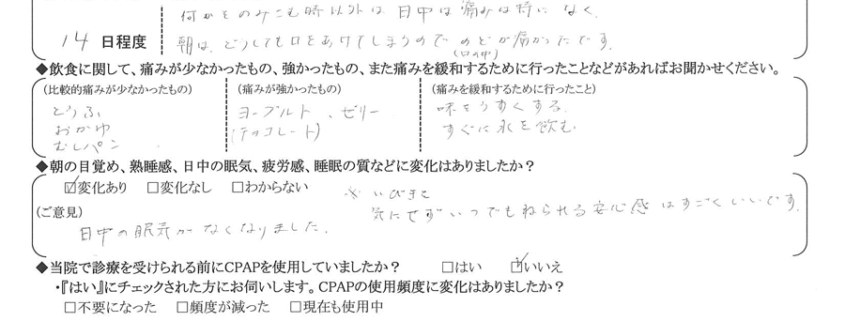 何かをのみこむ時以外は日中は痛みは特になく、
14 日程度
朝は、どうしても口をあけてしまうのでのどが痛かったです。
(口の中)
◆飲食に関して、痛みが少なかったもの、強かったもの、また痛みを緩和するために行ったことなどがあればお聞かせください。
(比較的痛みが少なかったもの) (痛みが強かったもの) (痛みを緩和するために行ったこと)
とうふ ヨーグルト、ゼリー 味をうすくする
おかゆ (チョコレート) すぐに水を飲む
むしパン
◆朝の目覚め、熟睡感、日中の眠気、疲労感、睡眠の質などに変化はありましたか?
☑変化あり □変化なし □わからない
※いびきを
(ご意見) 気にせずいつでもねられる安心感はすごくいいです。
日中の眠気がなくなりました。
◆当院で診療を受けられる前にCPAPを使用していましたか? □はい ☑いいえ
・『はい』にチェックされた方にお伺いします。CPAPの使用頻度に変化はありましたか?
□不要になった □頻度が減った □現在も使用中